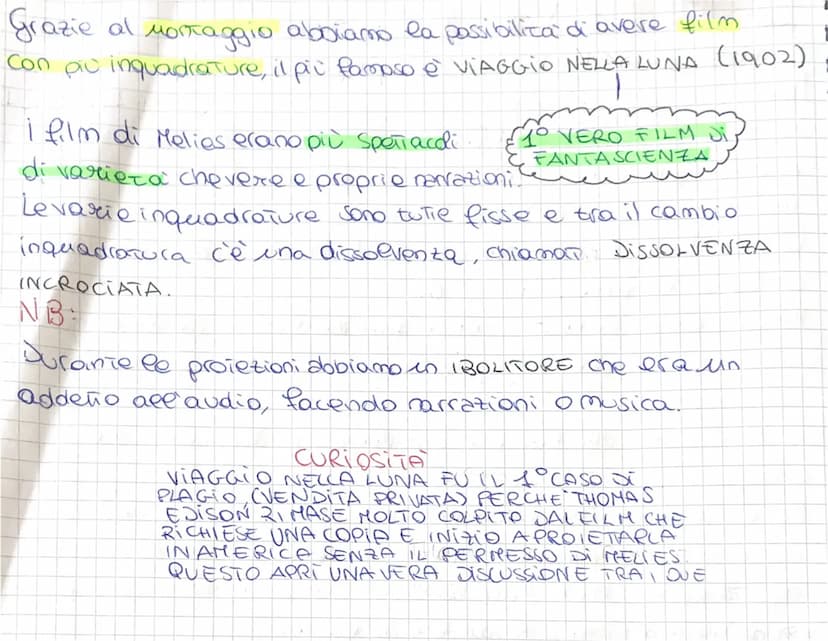 Grazie al montaggio abbiamo la possibilità di avere film
con più inquadrature, il più famoso è VIAGGIO NELLA LUNA (1902)
i film di Melies erano più spettacoli
di varietà che vere e proprie narrazioni.
1° VERO FILM DI
FANTASCIENZA
Le varie inquadrature sono tutte fisse e tra il cambio
inquadratura c'è una dissolventa, chiamat. DISSOLVENZA
INCROCIATA.
NB:
Durante le proiezioni abbiamo un IBOLITORE che era un
addetto all'audio, facendo narrazioni o musica.
CURIOSITÀ
VIAGGIO NELLA LUNA FU IL 1° CASO DI
PLAGIO, (VENDITA PRIVATA) PERCHÈ THOMAS
EDISON RIMASE MOLTO COLPITO DAL FILM CHE
RICHIESE UNA COPIA E INIZIÒ A PROIETARLA
IN AMERICA SENZA IL PERMESSO DI MELIES
QUESTO APRÌ UNA VERA DISCUSSIONE TRA I DUE